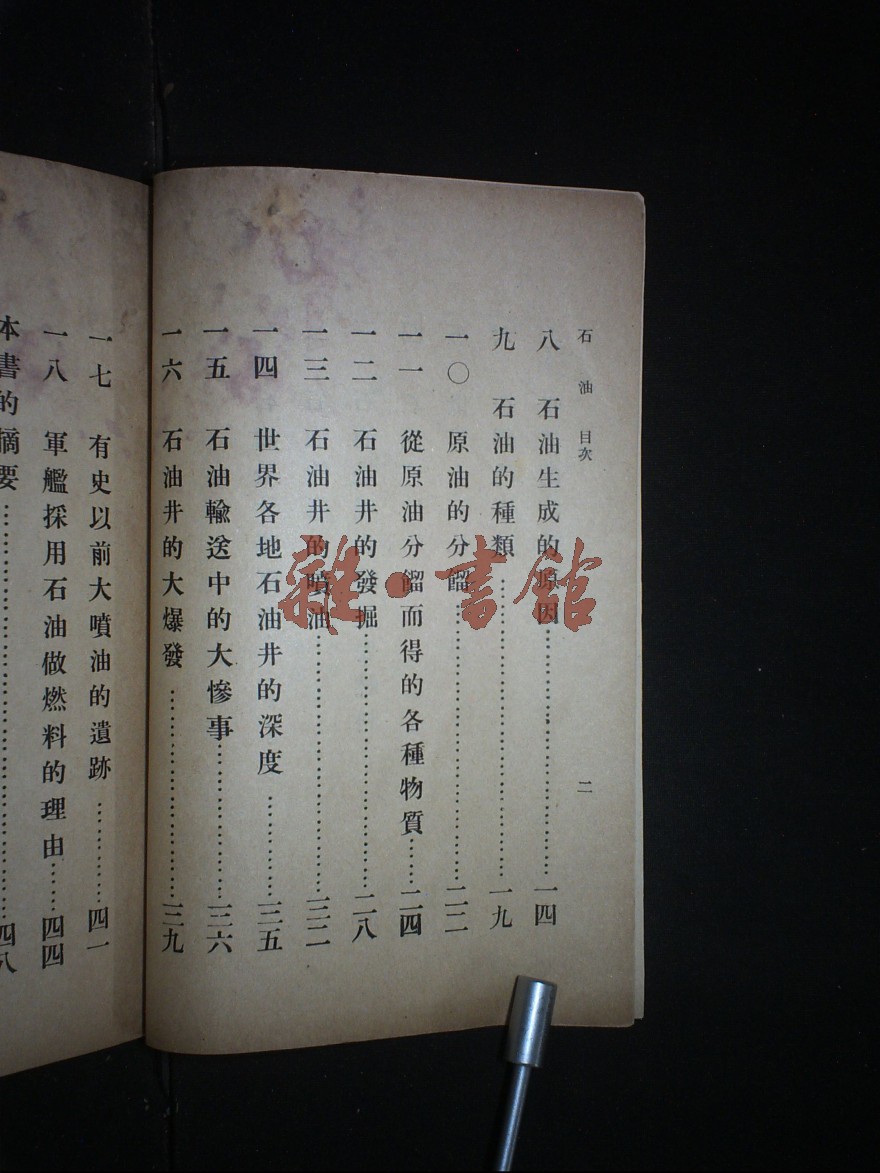 石油 目次 二
八 石油生成的原因……一四
九 石油的種類……一九
一〇 原油的分餾……二二
一一 從原油分餾而得的各種物質……二四
一二 石油井的發掘……二八
一三 石油井的噴油……三二
一四 世界各地石油井的深度……三五
一五 石油輸送中的大慘事……三六
一六 石油井的大爆發……三九
一七 有史以前大噴油的遺跡……四一
一八 軍艦採用石油做燃料的理由……四四
本書的摘要……四八
雜·書館